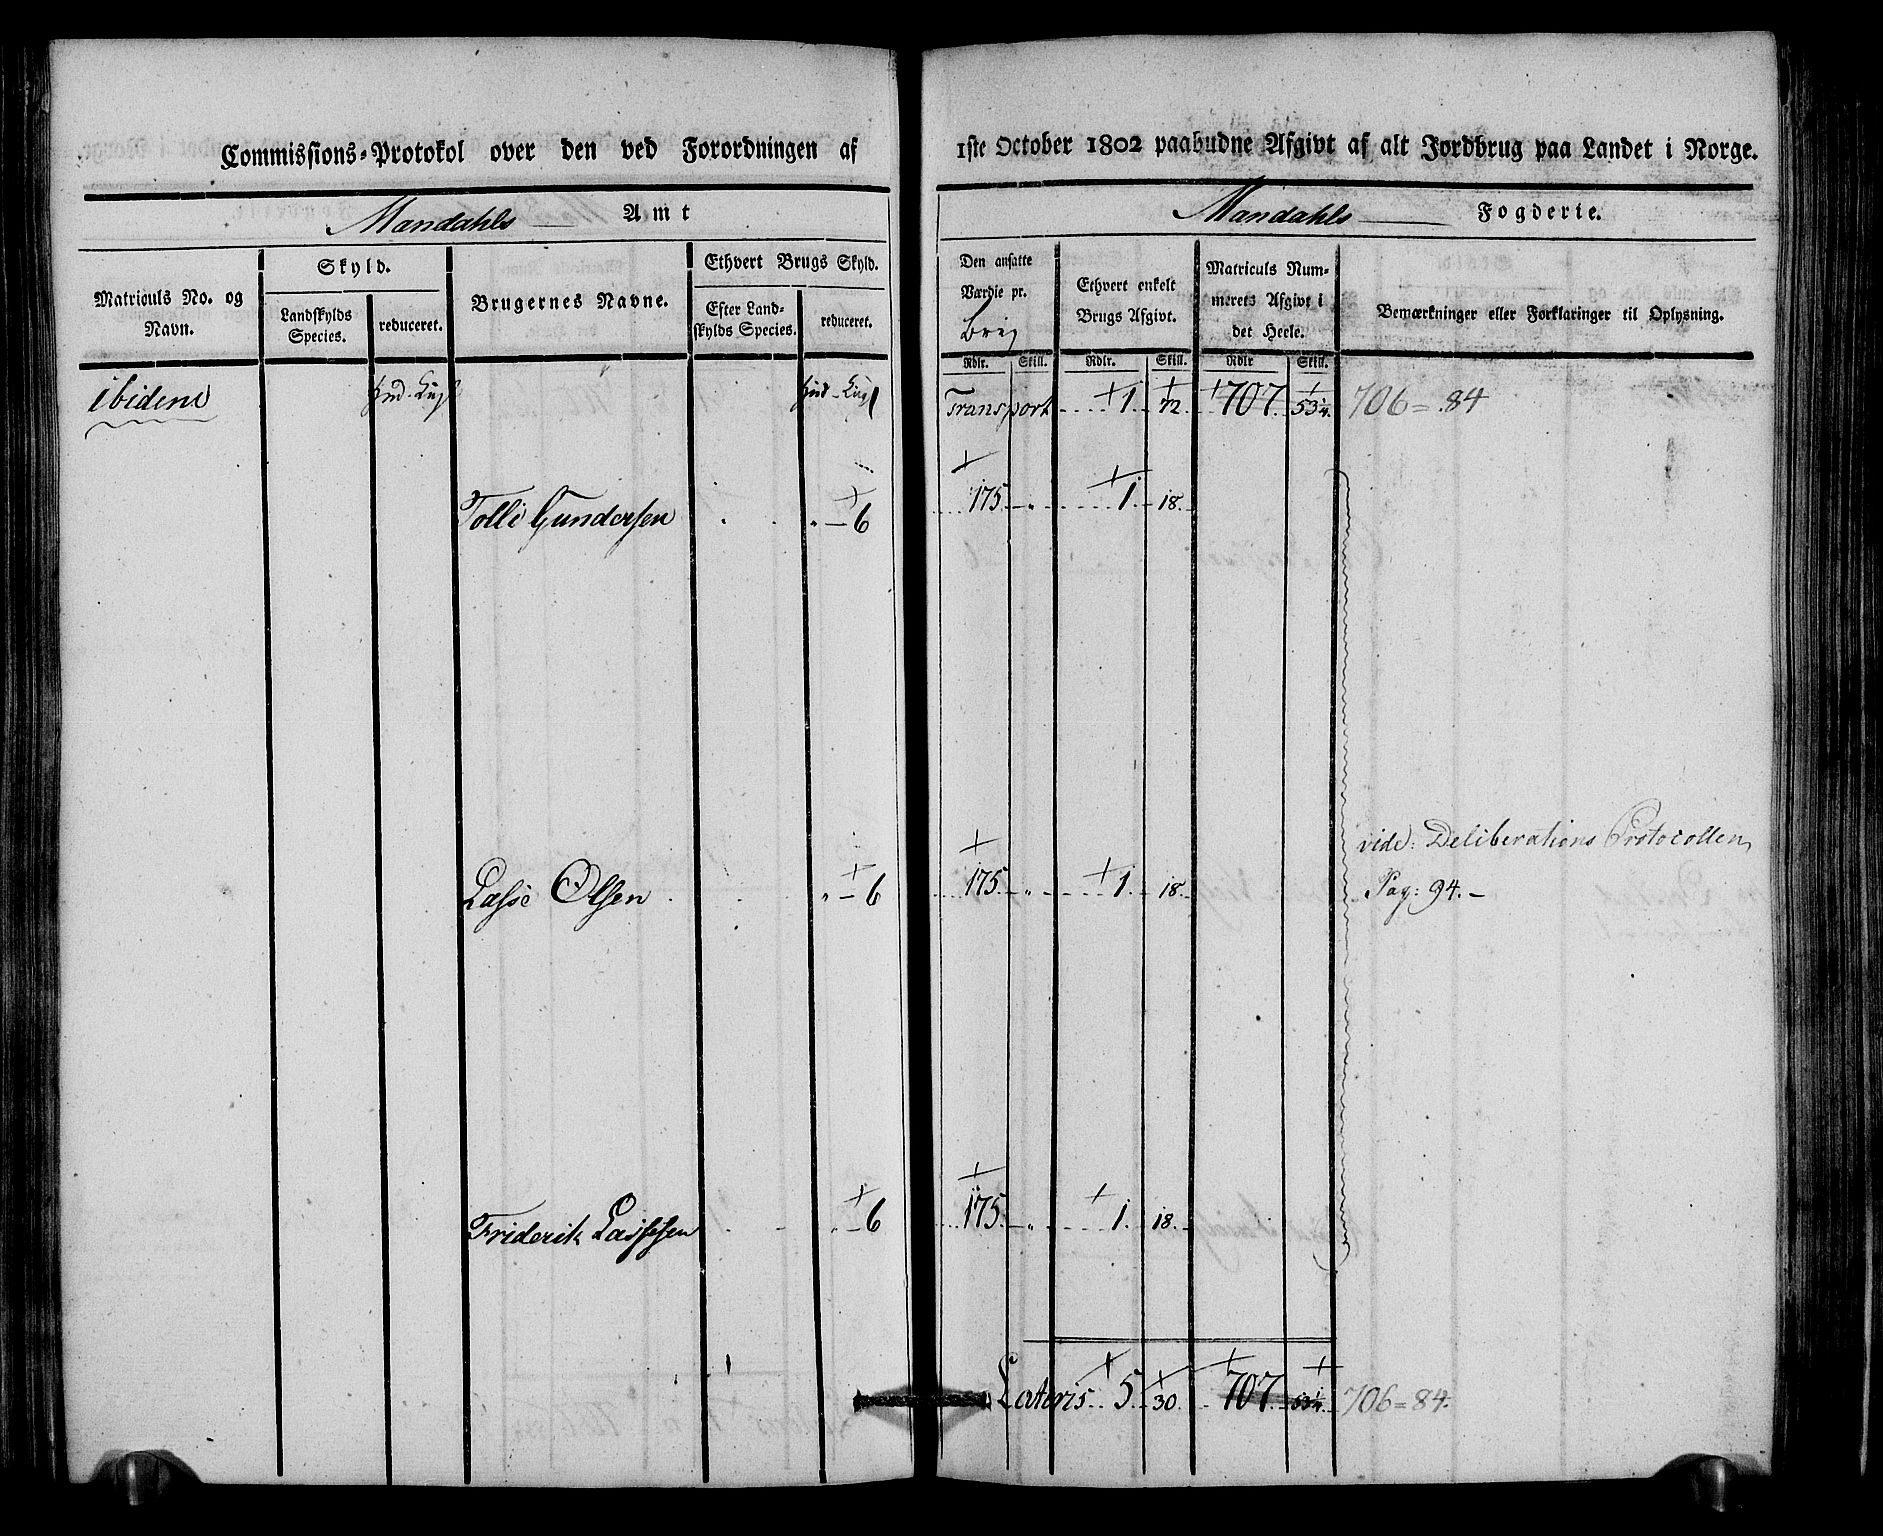 Commissions-Protokol over den ved Forordningen af 1ste October 1802 paabudne Afgivt af alt Jordbrug paa Landet i Norge.
Mandahls Amt
Mandahls Fogderie.
Matriculs No. og Navn.
Skyld.
Landskylds Species.
reduceret.
Brugernes Navne.
Ethvert Brugs Skyld.
Efter Landskylds Species.
reduceret.
Den ansatte Værdie pr. Brug
Ethvert enkelt Brugs Afgivt.
Matriculs Nummerets Afgivt i det Heele.
Bemærkninger eller Forklaringer til Oplysning.
Rdlr. Skill. Rdlr. Skill. Rdlr Skill.
ibidem
Transport 1. 72. 707. 53 1/4. 706 = 84
Tolle Gundersen " – 6 175 – " 1. 18.
vide: Deliberations Protocollen
Lasse Olsen " – 6 175. " 1. 18. Pag: 94. –
Friderik Lassesen " – 6 175. – " 1. 18.
Lateris 5 30. 707. 53 1/4. 706 = 84.